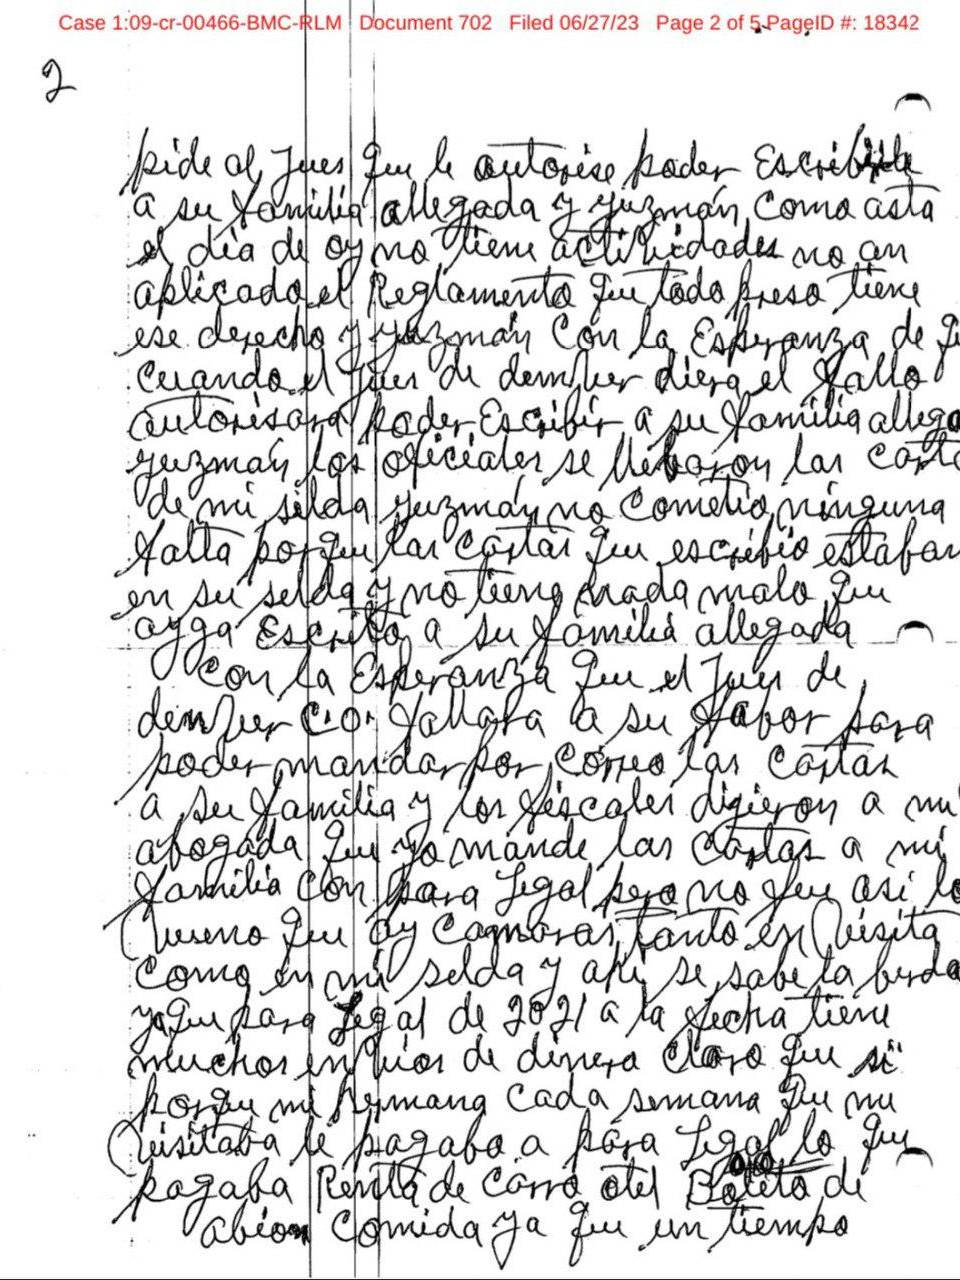 Case 1:09-cr-00466-BMC-RLM Document 702 Filed 06/27/23 Page 2 of 5 PageID #: 18342
2
pide al Jues que le autorise poder Escribirle
a su familia allegada y yuzmán como asta
el día de oy no tiene actibidades no an
aplicado el Reglamento que todo preso tiene
ese derecho y yuzmán Con la Esperanza de
cuando el Jues de dember diera el fallo
autorisara poder Escribir a su familia allega
yuzmán los oficiales se llebaron las carta
de mi selda yuzmán no cometio ninguna
falta porque las cartas que escribio estaban
en su selda y no tiene nada malo que
ayga Escrito a su familia allegada
Con la Esperanza que el Jues de
dember C.O. fallara a su fabor para
poder mandar por correo las cartas
a su familia y los fiscales digieron a mi
abogada que yo mande las cartas a mi
familia con para Legal pero no fue asi lo
Bueno que ay camaras tanto en Visita
como en mi selda y ahi se sabe la berda
ya que para Legal de 2021 a la fecha tiene
muchos enbios de dinero claro que si
porque mi hermana cada semana que me
Visitaba le pagaba a para Legal lo que
pagaba Renta de carro otel Boleto de
abion comida ya que un tiempo